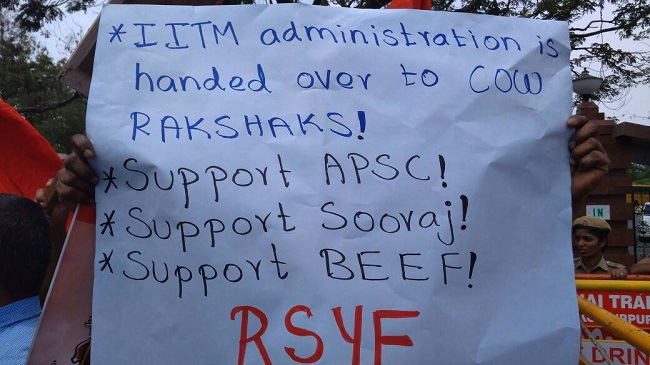 *IITM administration is
handed over to COW
RAKSHAKS!
*Support APSC!
*Support Sooraj!
*Support BEEF!
RSYF
IN